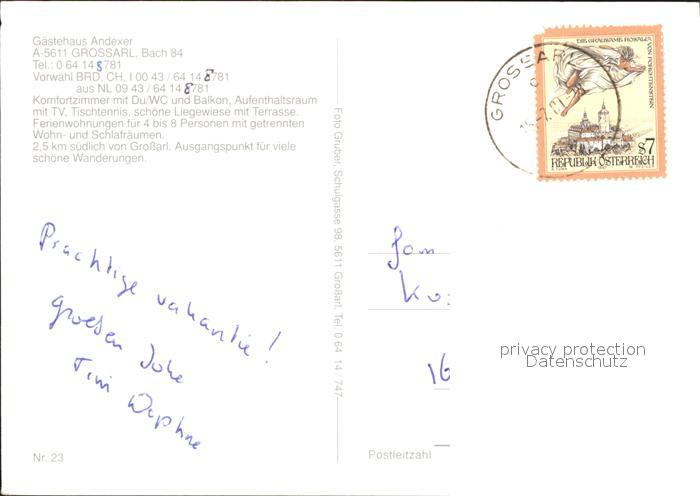 Gästehaus Andexer
A-5611 GROSSARL, Bach 84
Tel.: 0 64 14 8781
Vorwahl BRD, CH, I 00 43 / 64 14 8781
aus NL 09 43 / 64 14 8781
Komfortzimmer mit Du/WC und Balkon, Aufenthaltsraum
mit TV, Tischtennis, schöne Liegewiese mit Terrasse.
Ferienwohnungen für 4 bis 8 Personen mit getrennten
Wohn- und Schlafräumen.
2,5 km südlich von Großarl. Ausgangspunkt für viele
schöne Wanderungen.
Prachtige vakantie!
groeten Joke
Tini Daphne
Nr. 23
Foto Gruber, Schulgasse 98, 5611 Großarl, Tel. 0 64 14 / 747
GROSSARL
DIE GRAUSAME ROSALIA VON FORCHTENSTEIN
S7
REPUBLIK ÖSTERREICH
Fam
Ko
16
privacy protection
Datenschutz
Postleitzahl